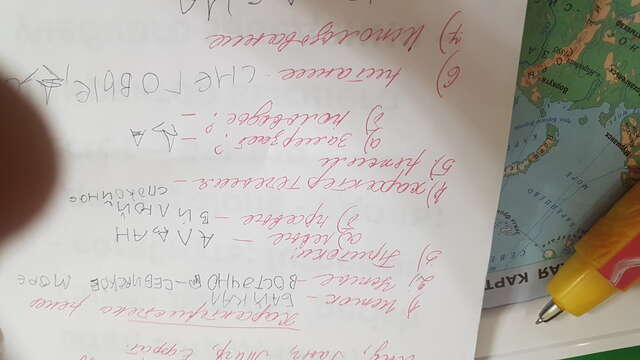 Инд, Ганг, Тигр, Ефрат.
Характеристика реки
1) Исток – БАЙКАЛ
2) Устье – ВОСТОЧНО – СЕБИРСКОЕ МОРЕ
3) Притоки:
а) левые – АЛДАН
б) правые – ВИЛЮЙ
4) характер течения – СПОКОЙНОЕ
5) режим
а) замерзает? – ДА
б) половодье? –
6) питание – СНЕГОВЫЕ,
7) Использование
АЯ КАРТ
МОРЕ
Воркута